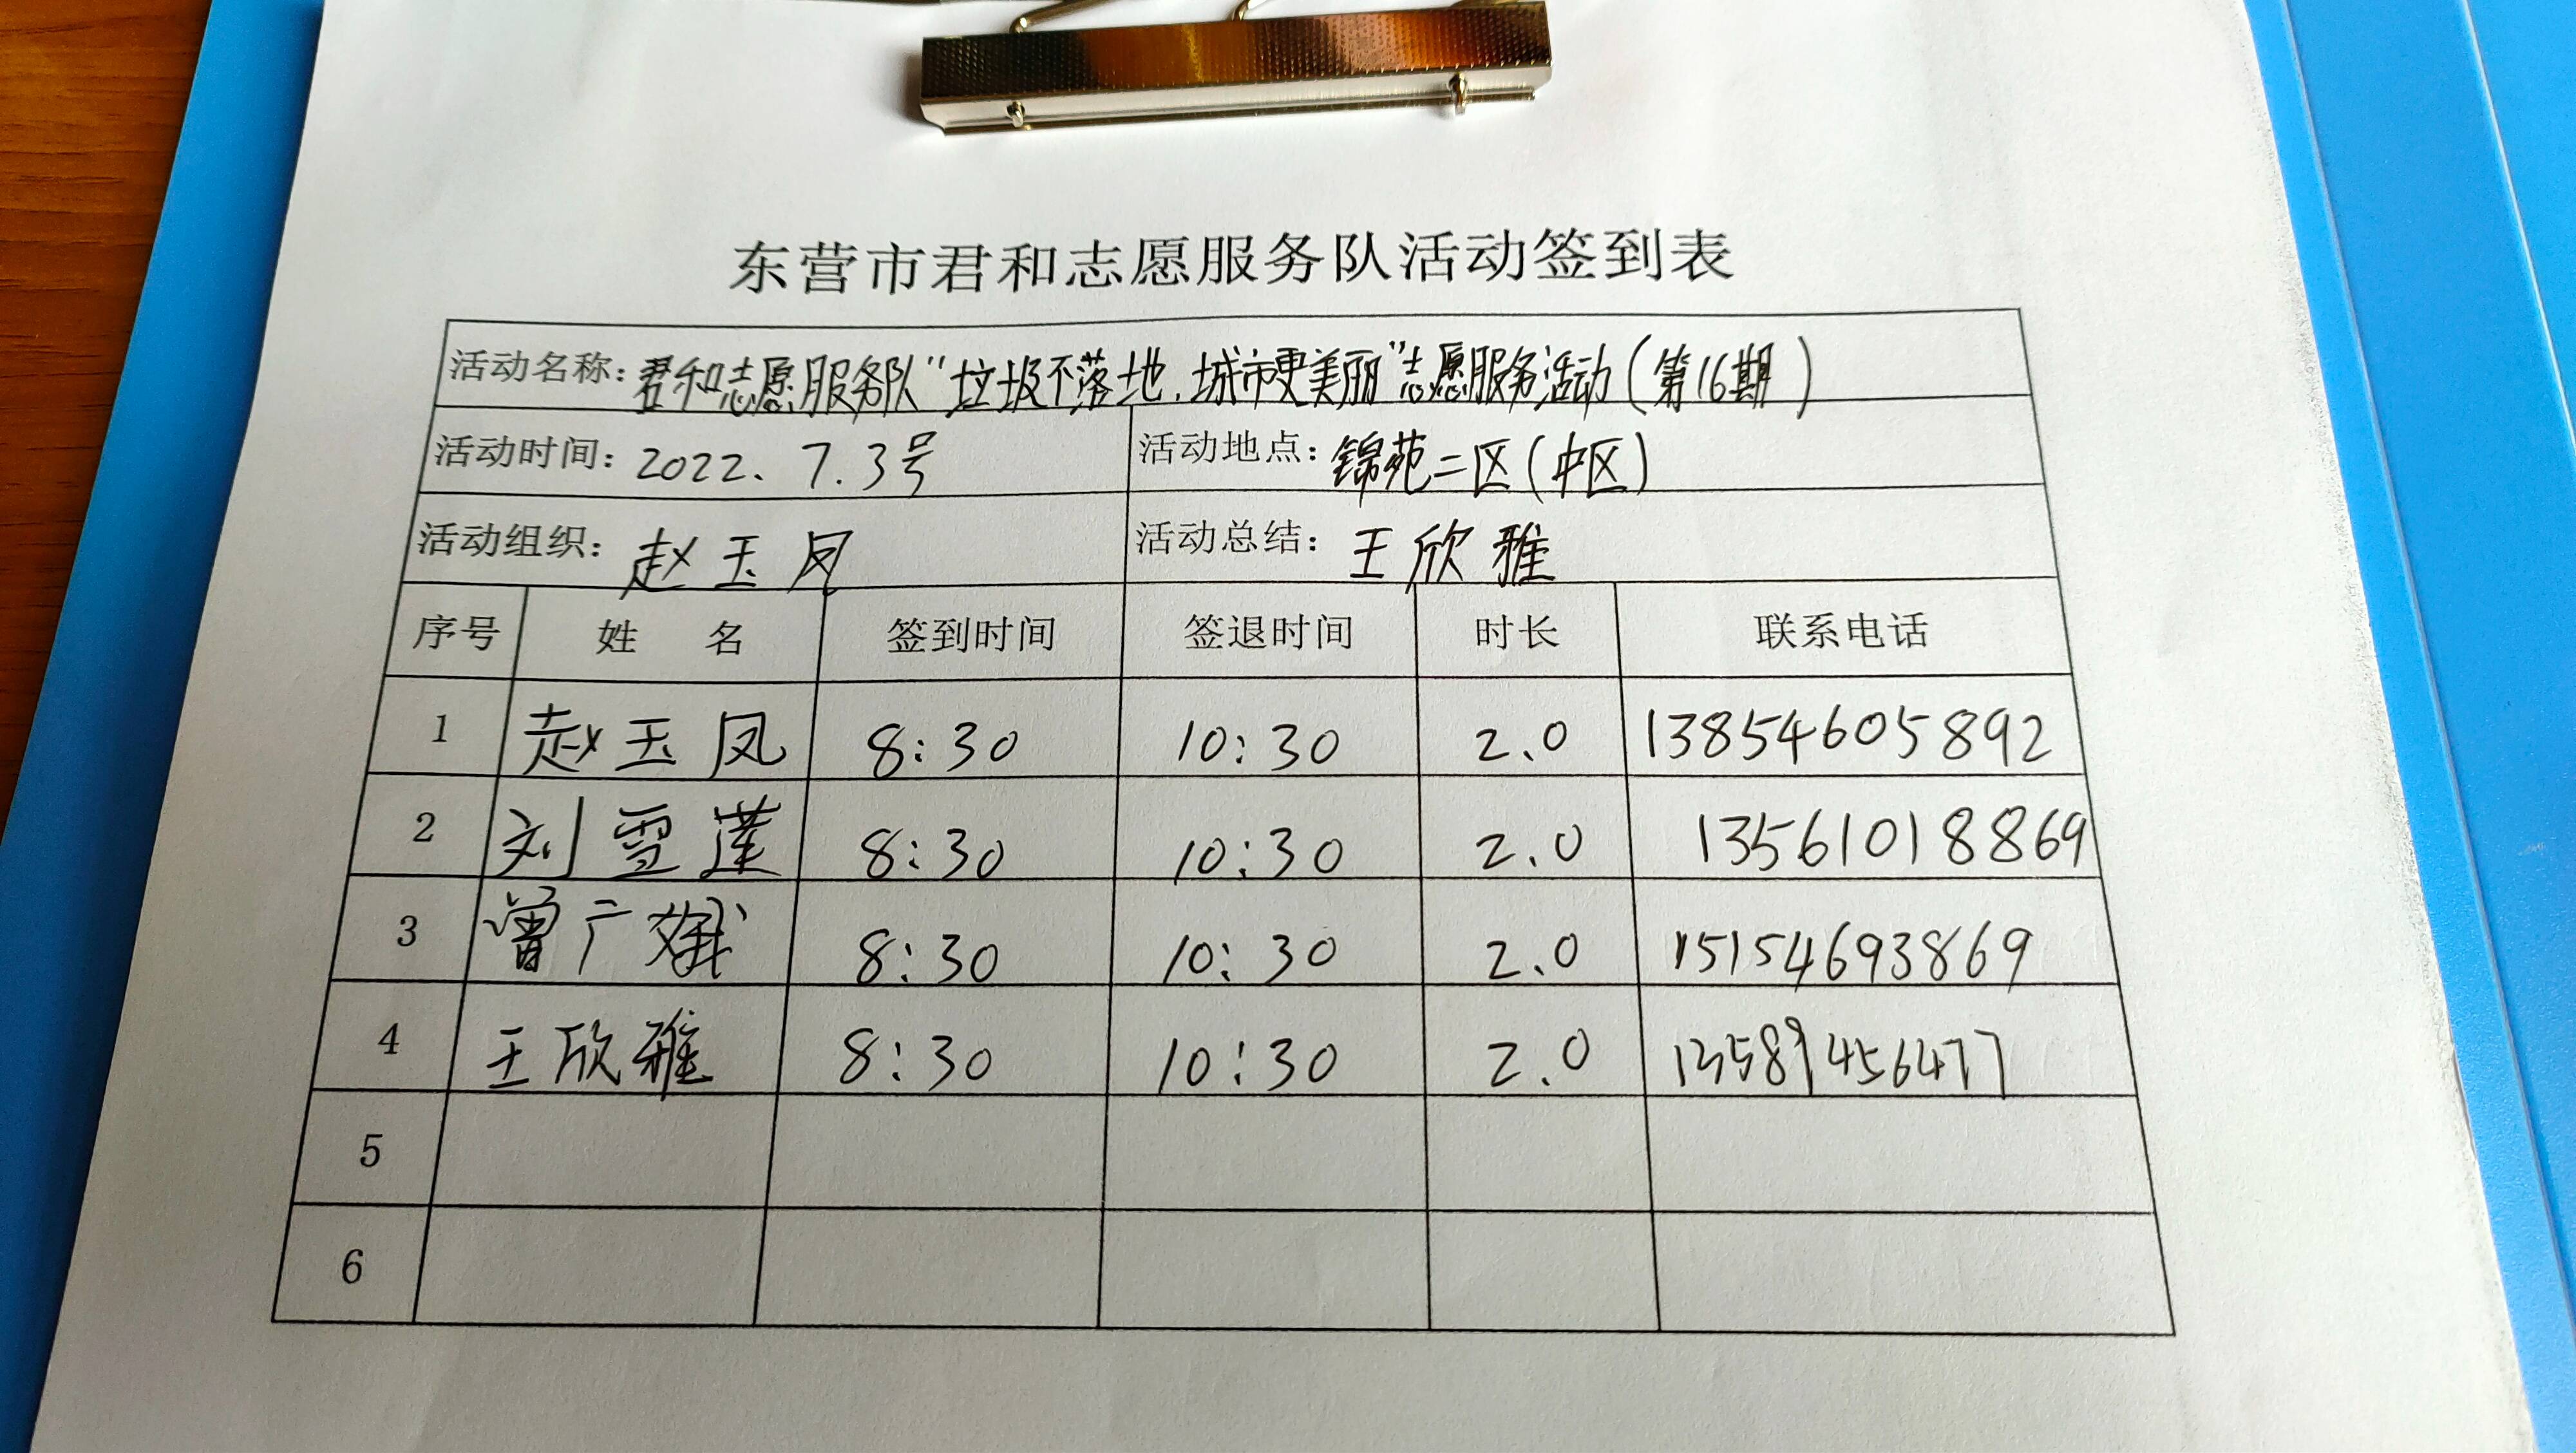 东营市君和志愿服务队活动签到表
活动名称：君和志愿服务队"垃圾不落地.城市更美丽"志愿服务活动(第16期)
活动时间：2022.7.3号 活动地点：锦苑二区(中区)
活动组织：赵玉凤 活动总结：王欣雅
序号 姓名 签到时间 签退时间 时长 联系电话
1 赵玉凤 8:30 10:30 2.0 13854605892
2 刘雪莲 8:30 10:30 2.0 13561018869
3 曾广娥 8:30 10:30 2.0 15154693869
4 王欣雅 8:30 10:30 2.0 13589456477
5
6